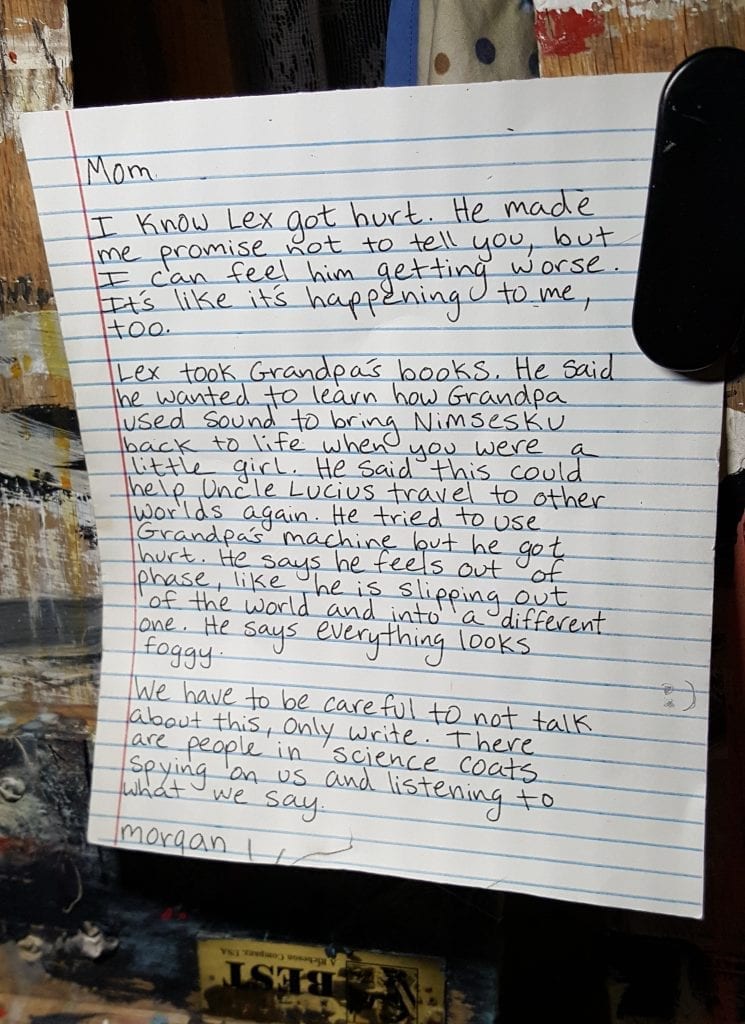 Mom.
I know Lex got hurt. He made
me promise not to tell you, but
I can feel him getting worse.
It's like it's happening to me,
too.
Lex took Grandpa's books. He said
he wanted to learn how Grandpa
used sound to bring Nimsesku
back to life when you were a
little girl. He said this could
help Uncle Lucius travel to other
worlds again. He tried to use
Grandpa's machine but he got
hurt. He says he feels out of
phase, like he is slipping out
of the world and into a different
one. He says everything looks
foggy.
We have to be careful to not talk
about this, only write. There
are people in science coats
spying on us and listening to
what we say.
morgan
BEST
A Richeson Company, USA